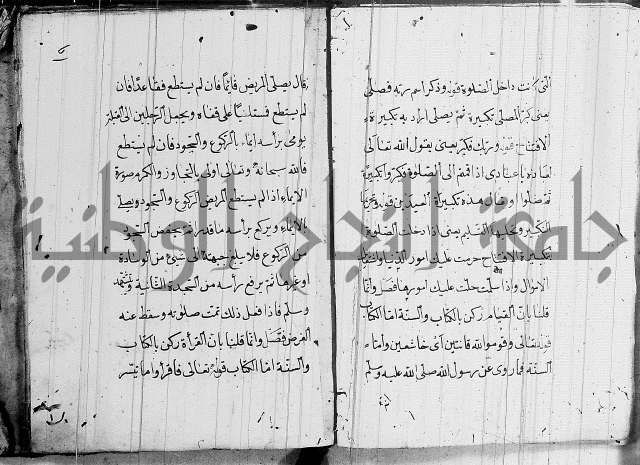 التي كنت داخل الصلوة قوله وذكر اسم ربه فصلى
يعنى كبر المصلى تكبيرة ثم يصلى اراد به تكبيرة
الافتتاح قوله وربك فكبر يعنى يقول الله تعالى
لعباده يا عبادى اذا قمتم الى الصلوة فكبروا تكبيرة
ثم صلوا وقال هذه تكبيرة العيدين قوله وتحريمها
التكبير وتحليلها التسليم يعنى اذا دخلت الصلوة
بتكبيرة الافتتاح حرمت عليك امور الدنيا
الاموال واذا سلمت حلت عليك امورها فصل وانما
قلنا بان القيام ركن بالكتاب والسنة اما الكتاب
قوله تعالى وقوموا لله قانتين آى خاشعين واما
السنة فما روى عن رسول الله صلى الله عليه وسلم
قال يصلى المريض قائما فان لم يستطع فقاعدا فان
لم يستطع فمستلقيا على قفاه ويجعل الرجلين الى القبلة
يومى برأسه ايماء بالركوع والسجود فان لم يستطع
فالله سبحانه وتعالى اولى بالتجاوز والكرم صورة
الايماء اذا لم يستطع المريض الركوع والسجود ويصلى
بالايماء ويركع برأسه ما قدر ثم يخفض السجود
من الركوع فلا يبلغ جبهته الى شئ من الوسادة
او غيرها ثم يرفع رأسه من السجدة الثانية ويتشهد
وسلم فاذا فعل ذلك تمت صلوته وسقط عنه
الفرض فصل وانما قلنا بان القرأة ركن بالكتاب
والسنة اما الكتاب قوله تعالى فاقرأوا ما تيسر
جامعة النجاح الوطنية